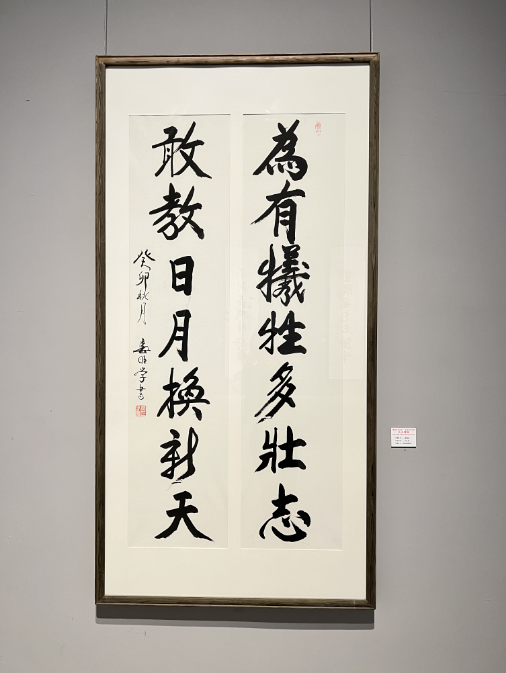 為有犧牲多壯志
敢教日月換新天
癸卯秋月
學書